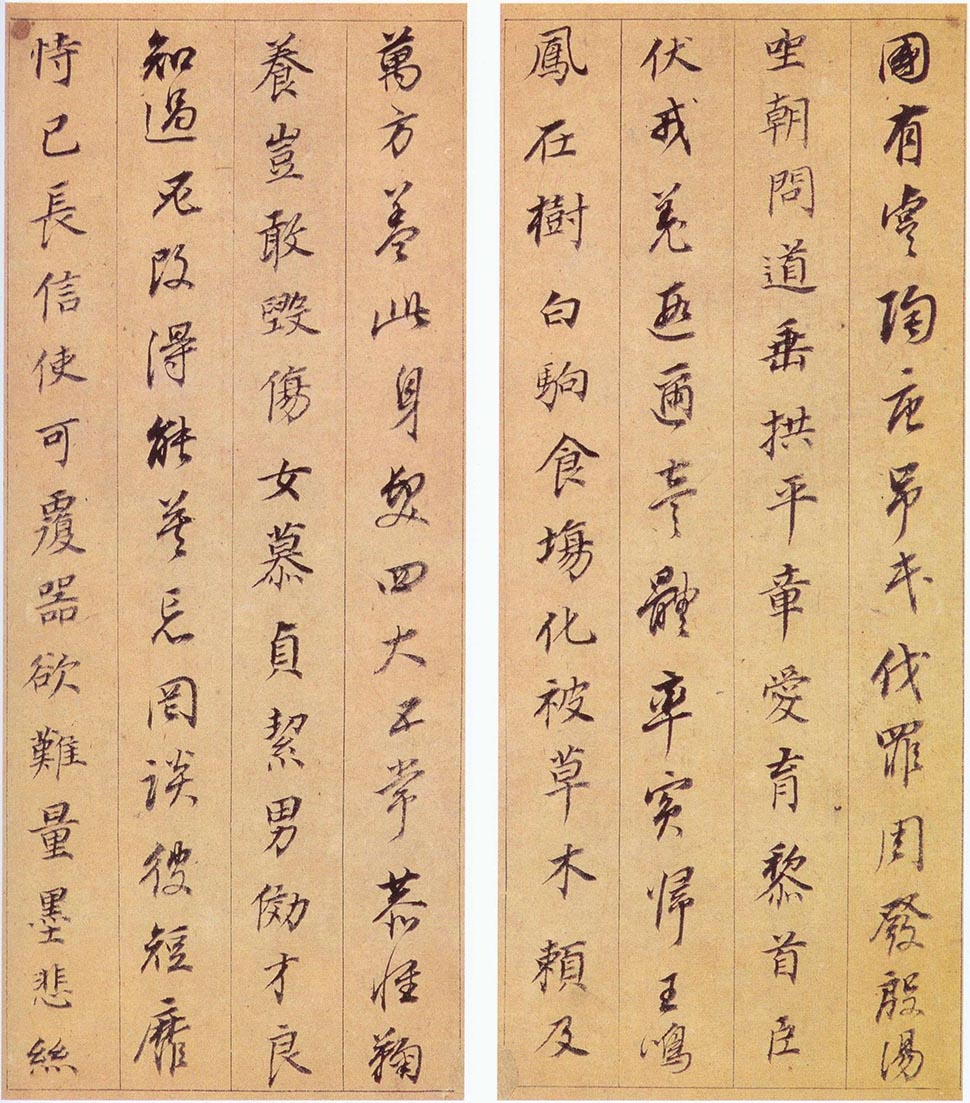 國有虞陶唐吊民伐罪周發殷湯
坐朝問道垂拱平章愛育黎首臣
伏戎羌遐邇壹體率賓歸王鳴
鳳在樹白駒食塲化被草木賴及
萬方蓋此身髮四大五常恭惟鞠
養豈敢毀傷女慕貞絜男効才良
知過必改得能莫忘罔談彼短靡
恃己長信使可覆器欲難量墨悲絲